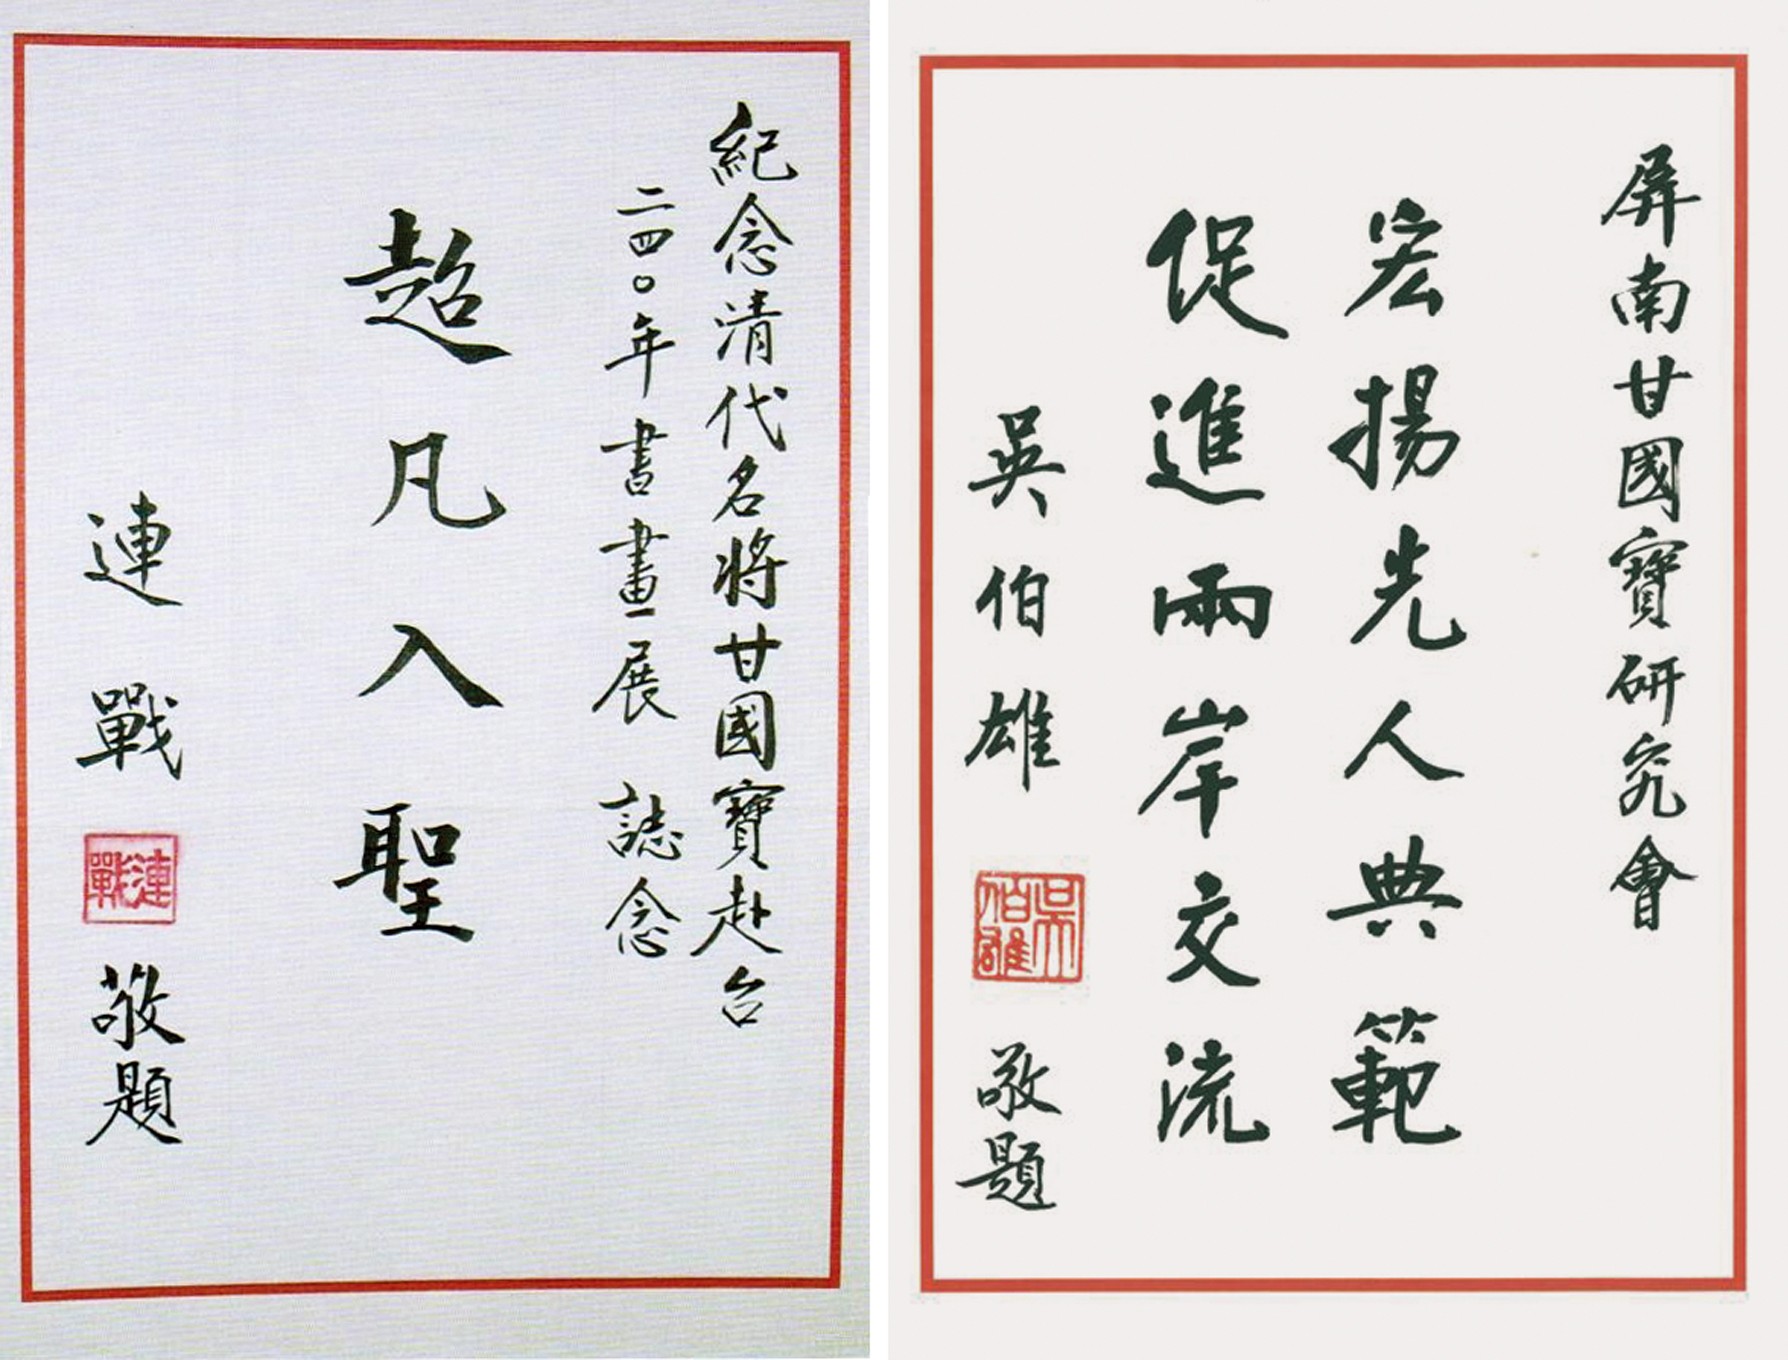 紀念清代名將甘國寶赴台
二四〇年書畫展 誌念
超凡入聖
連戰
連戰
敬題
屏南甘國寶研究會
宏揚先人典範
促進兩岸交流
吳伯雄
吳伯雄
敬題